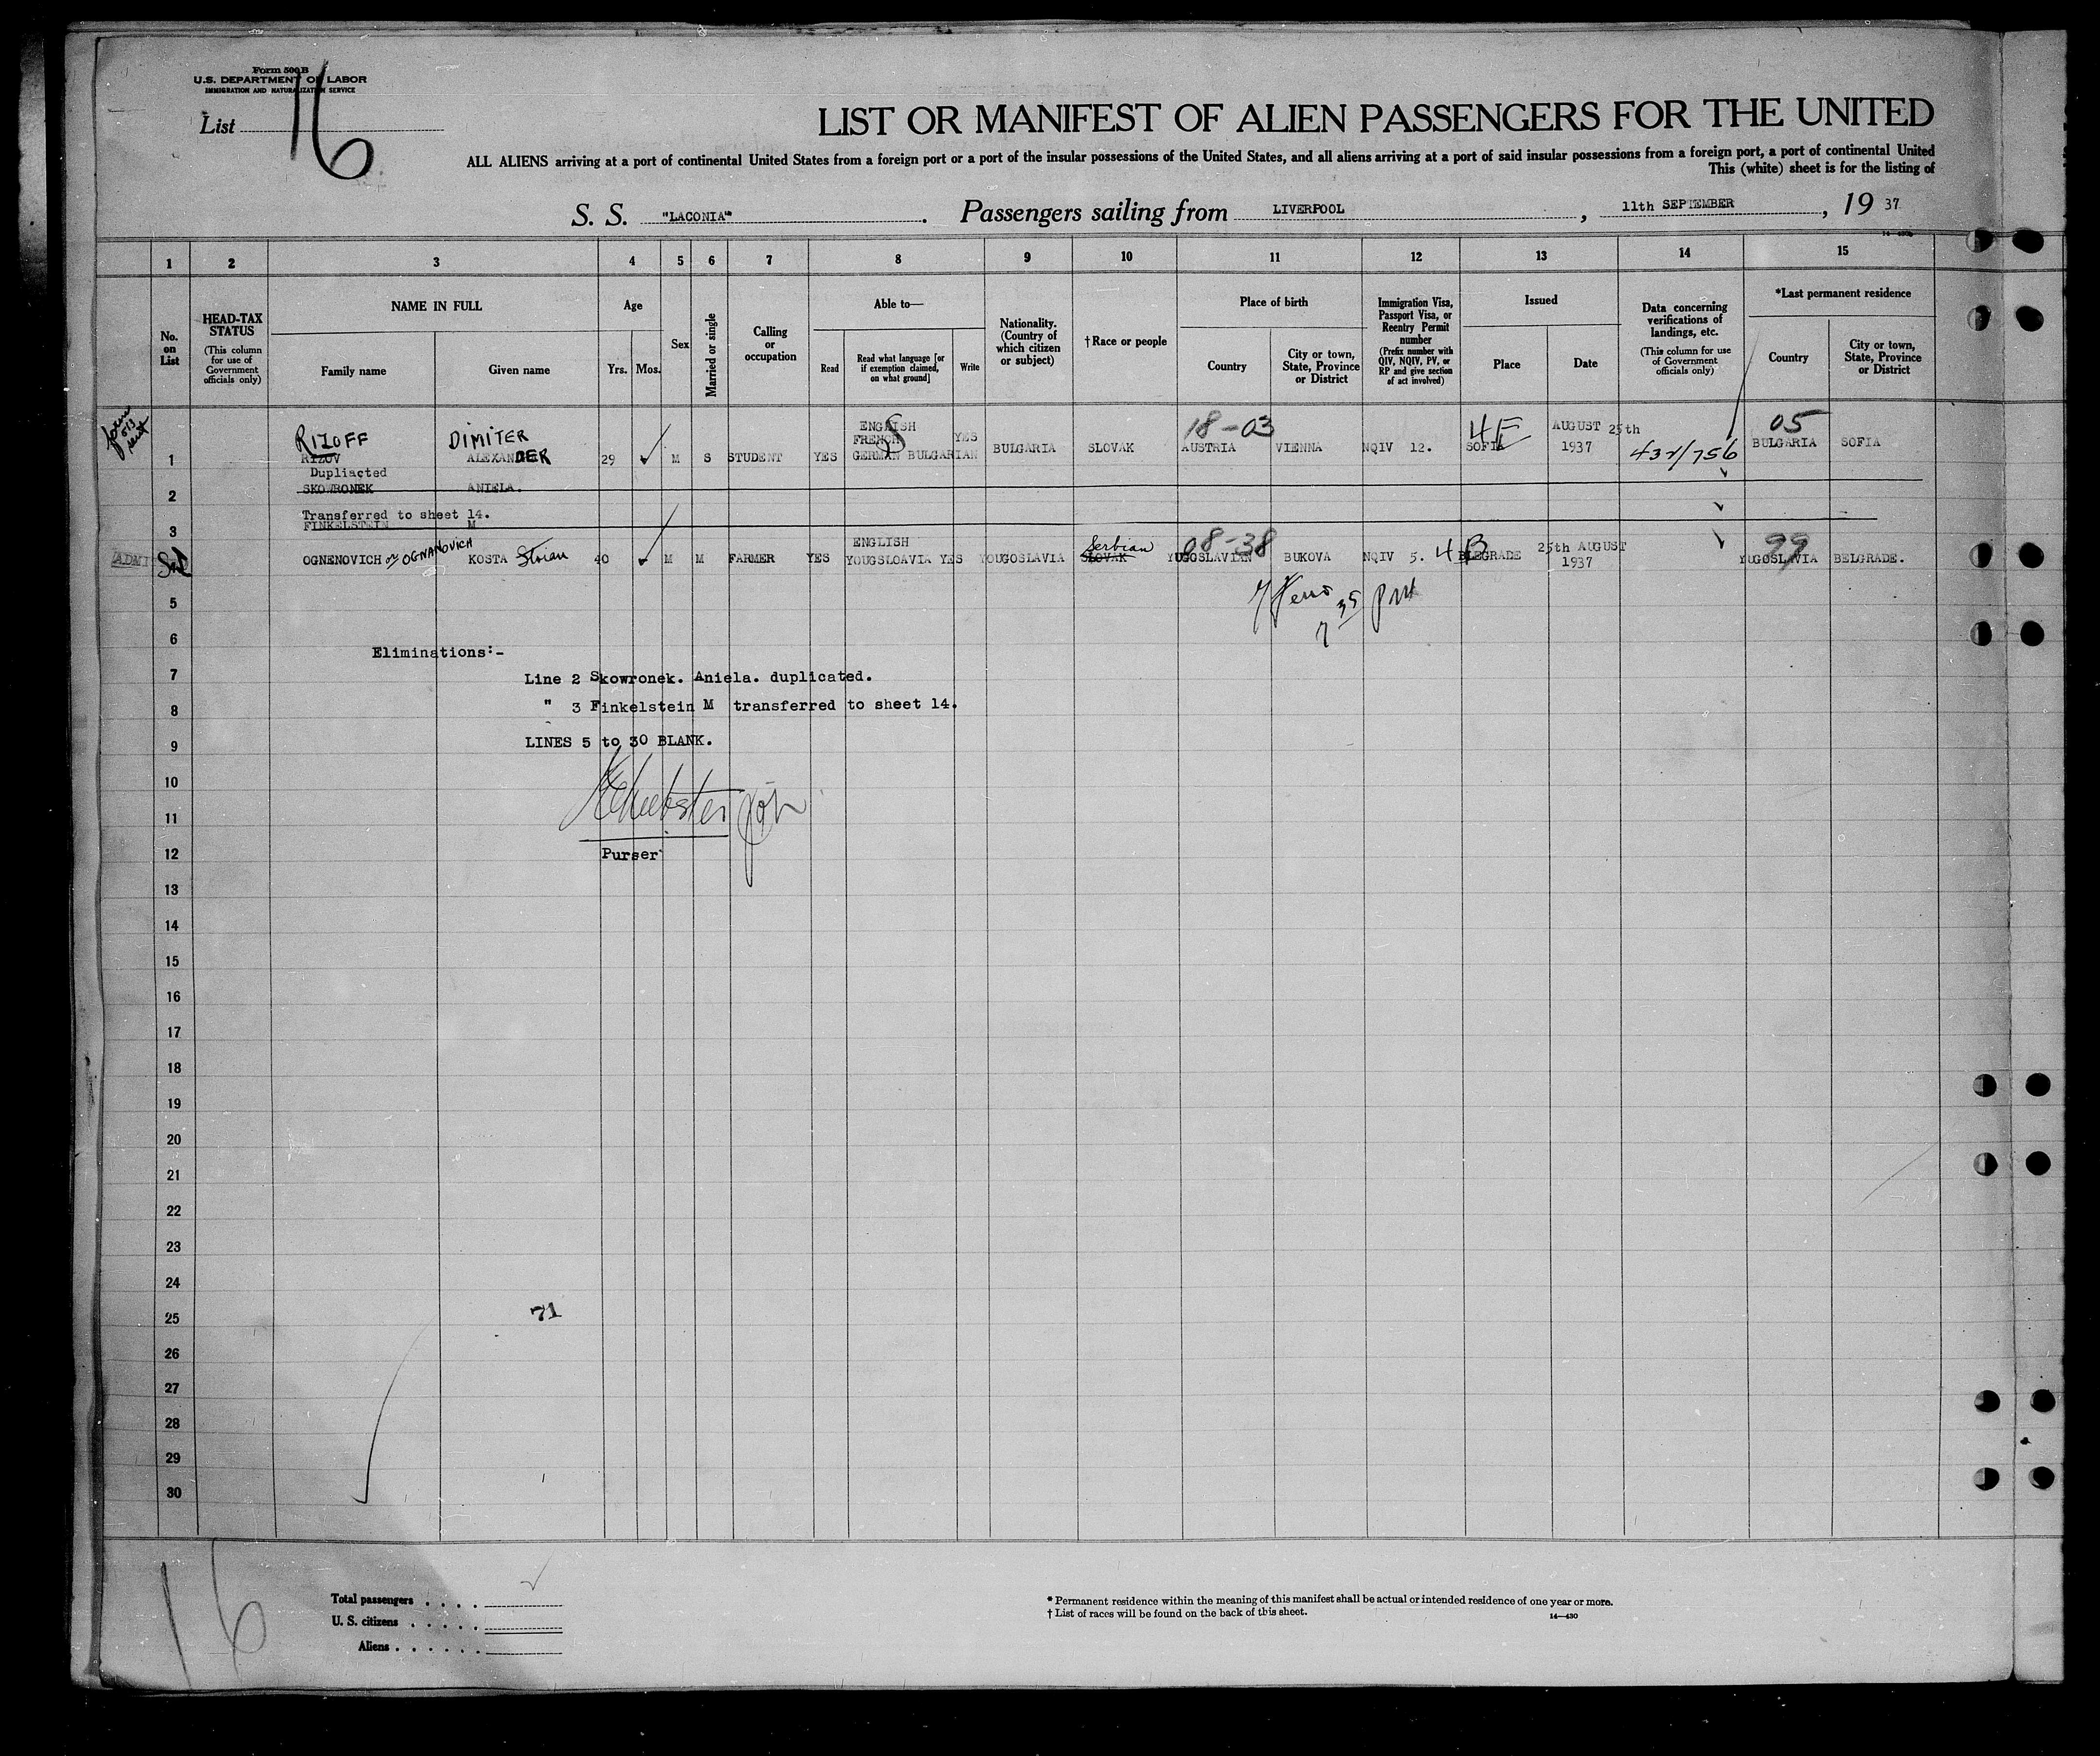 Form 500B
U.S. DEPARTMENT OF LABOR
IMMIGRATION AND NATURALIZATION SERVICE
List 16
LIST OR MANIFEST OF ALIEN PASSENGERS FOR THE UNITED
ALL ALIENS arriving at a port of continental United States from a foreign port or a port of the insular possessions of the United States, and all aliens arriving at a port of said insular possessions from a foreign port, a port of continental United
This (white) sheet is for the listing of
S. S. "LACONIA". Passengers sailing from LIVERPOOL, 11th SEPTEMBER, 19 37
1 2 3 4 5 6 7 8 9 10 11 12 13 14 15
No. on List
HEAD-TAX STATUS
(This column for use of Government officials only)
NAME IN FULL
Family name Given name
Age
Yrs. Mos.
Sex
Married or single
Calling or occupation
Able to—
Read
Read what language [or if exemption claimed, on what ground]
Write
Nationality. (Country of which citizen or subject)
†Race or people
Place of birth
Country
City or town, State, Province or District
Immigration Visa, Passport Visa, or Reentry Permit number
(Prefix number with QIV, NQIV, PV, or RP and give section of act involved)
Issued
Place Date
Data concerning verifications of landings, etc.
(This column for use of Government officials only)
*Last permanent residence
Country
City or town, State, Province or District
RIZOFF DIMITER ENGLISH 18-03 4E AUGUST 25th 05
FRENCH YES
1 RIZOV ALEXANDER 29 M S STUDENT YES GERMAN BULGARIAN BULGARIA SLOVAK AUSTRIA VIENNA NQIV 12. SOFIA 1937 432/756 BULGARIA SOFIA
Dupliacted
2 SKOWRONEK ANIELA.
Transferred to sheet 14.
3 FINKELSTEIN M
ENGLISH Serbian 08-38 25th AUGUST 99
ADMI OGNENOVICH or OGNANOVICH KOSTA Stoian 40 M M FARMER YES YOUGSLOAVIA YES YOUGOSLAVIA SLOVAK YUGOSLAVIAN BUKOVA NQIV 5. 4 B BLEGRADE 1937 YUGOSLAVIA BELGRADE.
5
6
Eliminations:-
7 Line 2 Skowronek. Aniela. duplicated.
8 " 3 Finkelstein M transferred to sheet 14.
9 LINES 5 to 30 BLANK.
10
11
12 Purser
13
14
15
16
17
18
19
20
21
22
23
24
25 71
26
27
28
29
30
16
Total passengers . . . .
U. S. citizens . . . . .
Aliens . . . . . .
* Permanent residence within the meaning of this manifest shall be actual or intended residence of one year or more.
† List of races will be found on the back of this sheet.
14—430